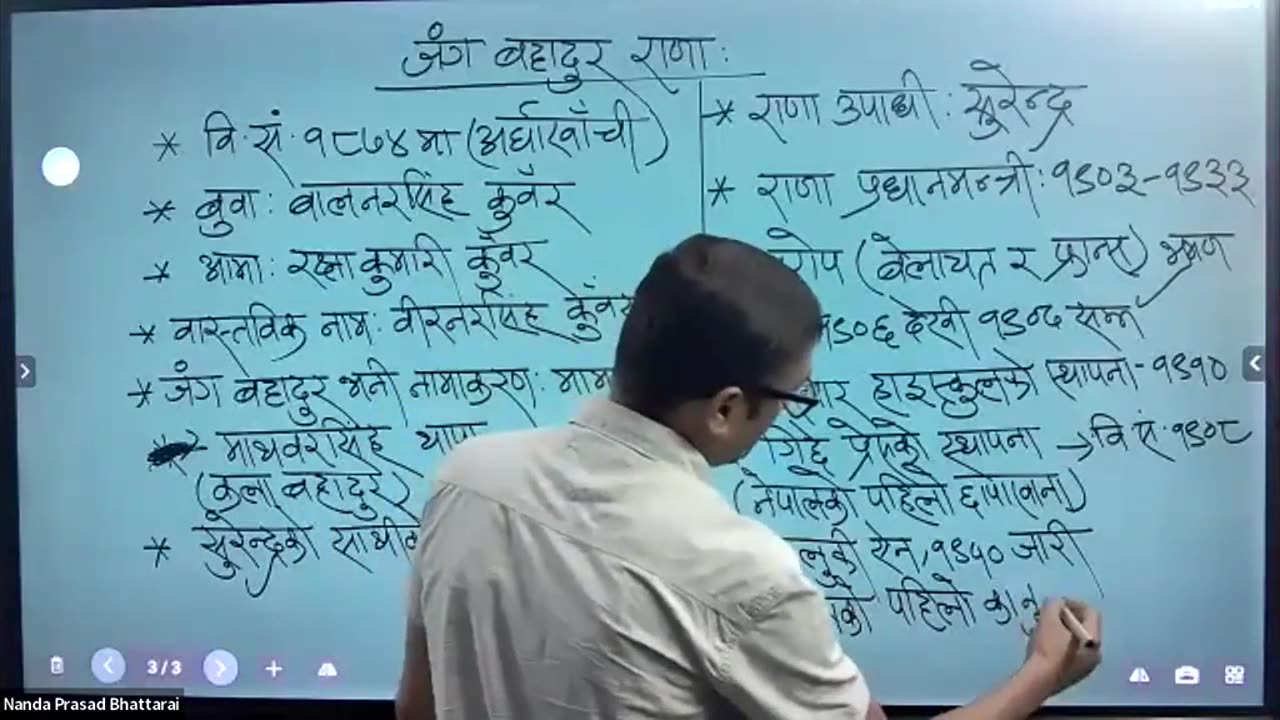 जंग बहादुर राणा :
* वि.सं. १८७४ मा (अर्घाखाँची)
* बुवा : बालनरसिंह कुवँर
* आमा : रक्षा कुमारी कुवँर
* वास्तविक नाम : वीरनरसिंह कुँवर
* जंग बहादुर भनी नामाकरण : मामा
माथवरसिंह थापा
(कुला बहादुर)
* सुरेन्द्रको साथी
* राणा उपाधी : सुरेन्द्र
* राणा प्रधानमन्त्री : १९०३-१९३३
(बेलायत र फ्रान्स) भ्रमण
१९०६ देखी १९०८ सम्म
हाइस्कुलको स्थापना - १९१०
गिद्दे प्रेसको स्थापना → वि सं. १९०८
(नेपालको पहिलो छापाखाना)
ऐन, १९१० जारी
पहिलो कानु
3/3
Nanda Prasad Bhattarai